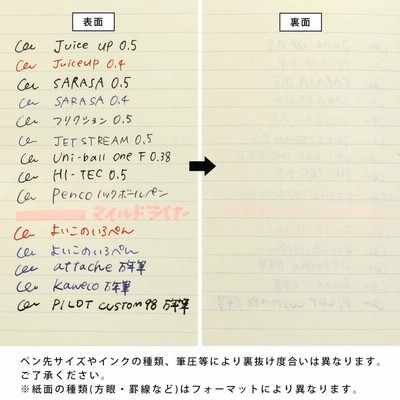 表面
Juice UP 0.5
JuiceUP 0.4
SARASA 0.5
SARASA 0.4
フリクション 0.5
JETSTREAM 0.5
Uni-ball one F 0.38
HI-TEC 0.5
Penco ノックボールペン
マイルドライナー
よいこのいろぺん
よいこのいろぺん
attache 万年筆
Kaweco 万年筆
PILOT CUSTOM 98 万年筆
裏面
ペン先サイズやインクの種類、筆圧等により裏抜け度合いは異なります。
ご了承ください。
※紙面の種類(方眼・罫線など)はフォーマットにより異なります。